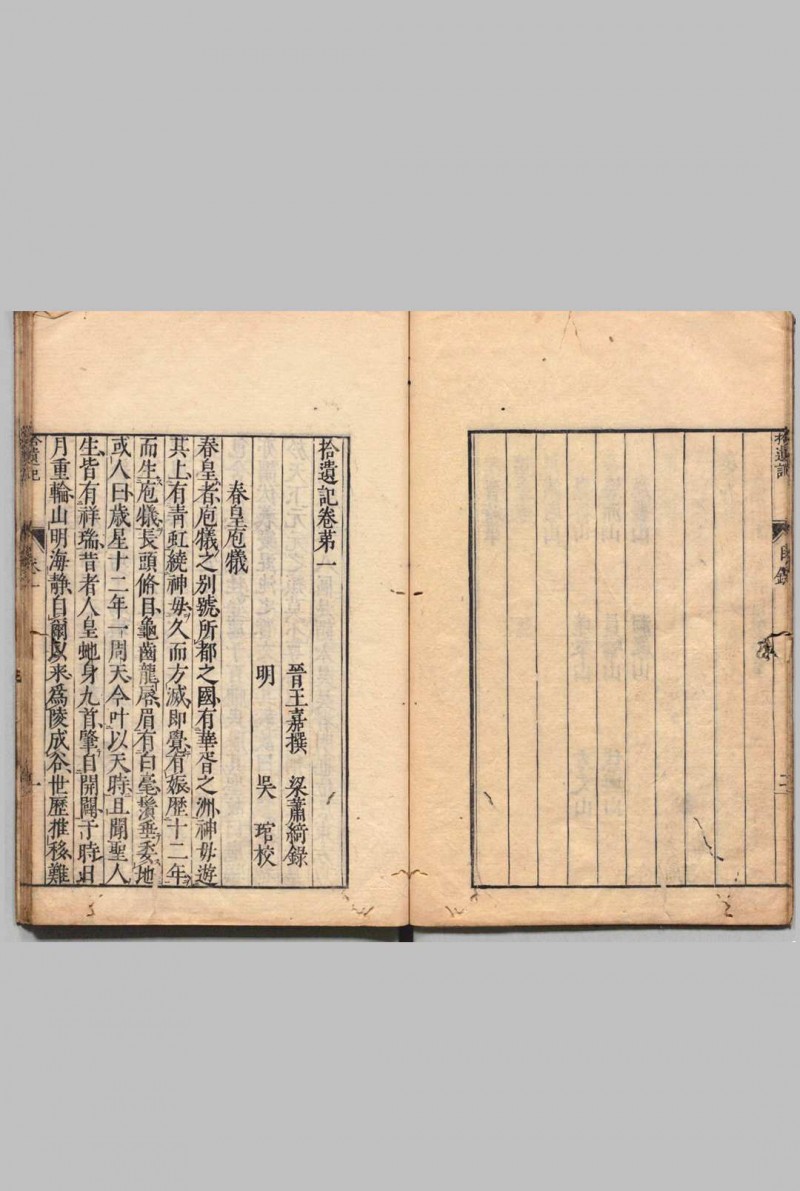 拾遺記
目錄
二
拾遺記卷第一
晉王嘉撰 梁蕭綺錄
明 吳 琯校
春皇庖犧
春皇者庖犧之别號所都之國有華胥之洲神毋遊
其上有青虹繞神毋久而方滅即覺有娠歷十二年
而生庖犧長頭脩目龜齒龍唇眉有白毫鬚垂委地
或人曰歲星十二年一周天今叶以天時且聞聖人
生皆有祥瑞昔者人皇虵身九首肇自開闢于時日
月重輪山明海静自爾以来爲陵成谷世歷推移難
拾遺記
卷一
一